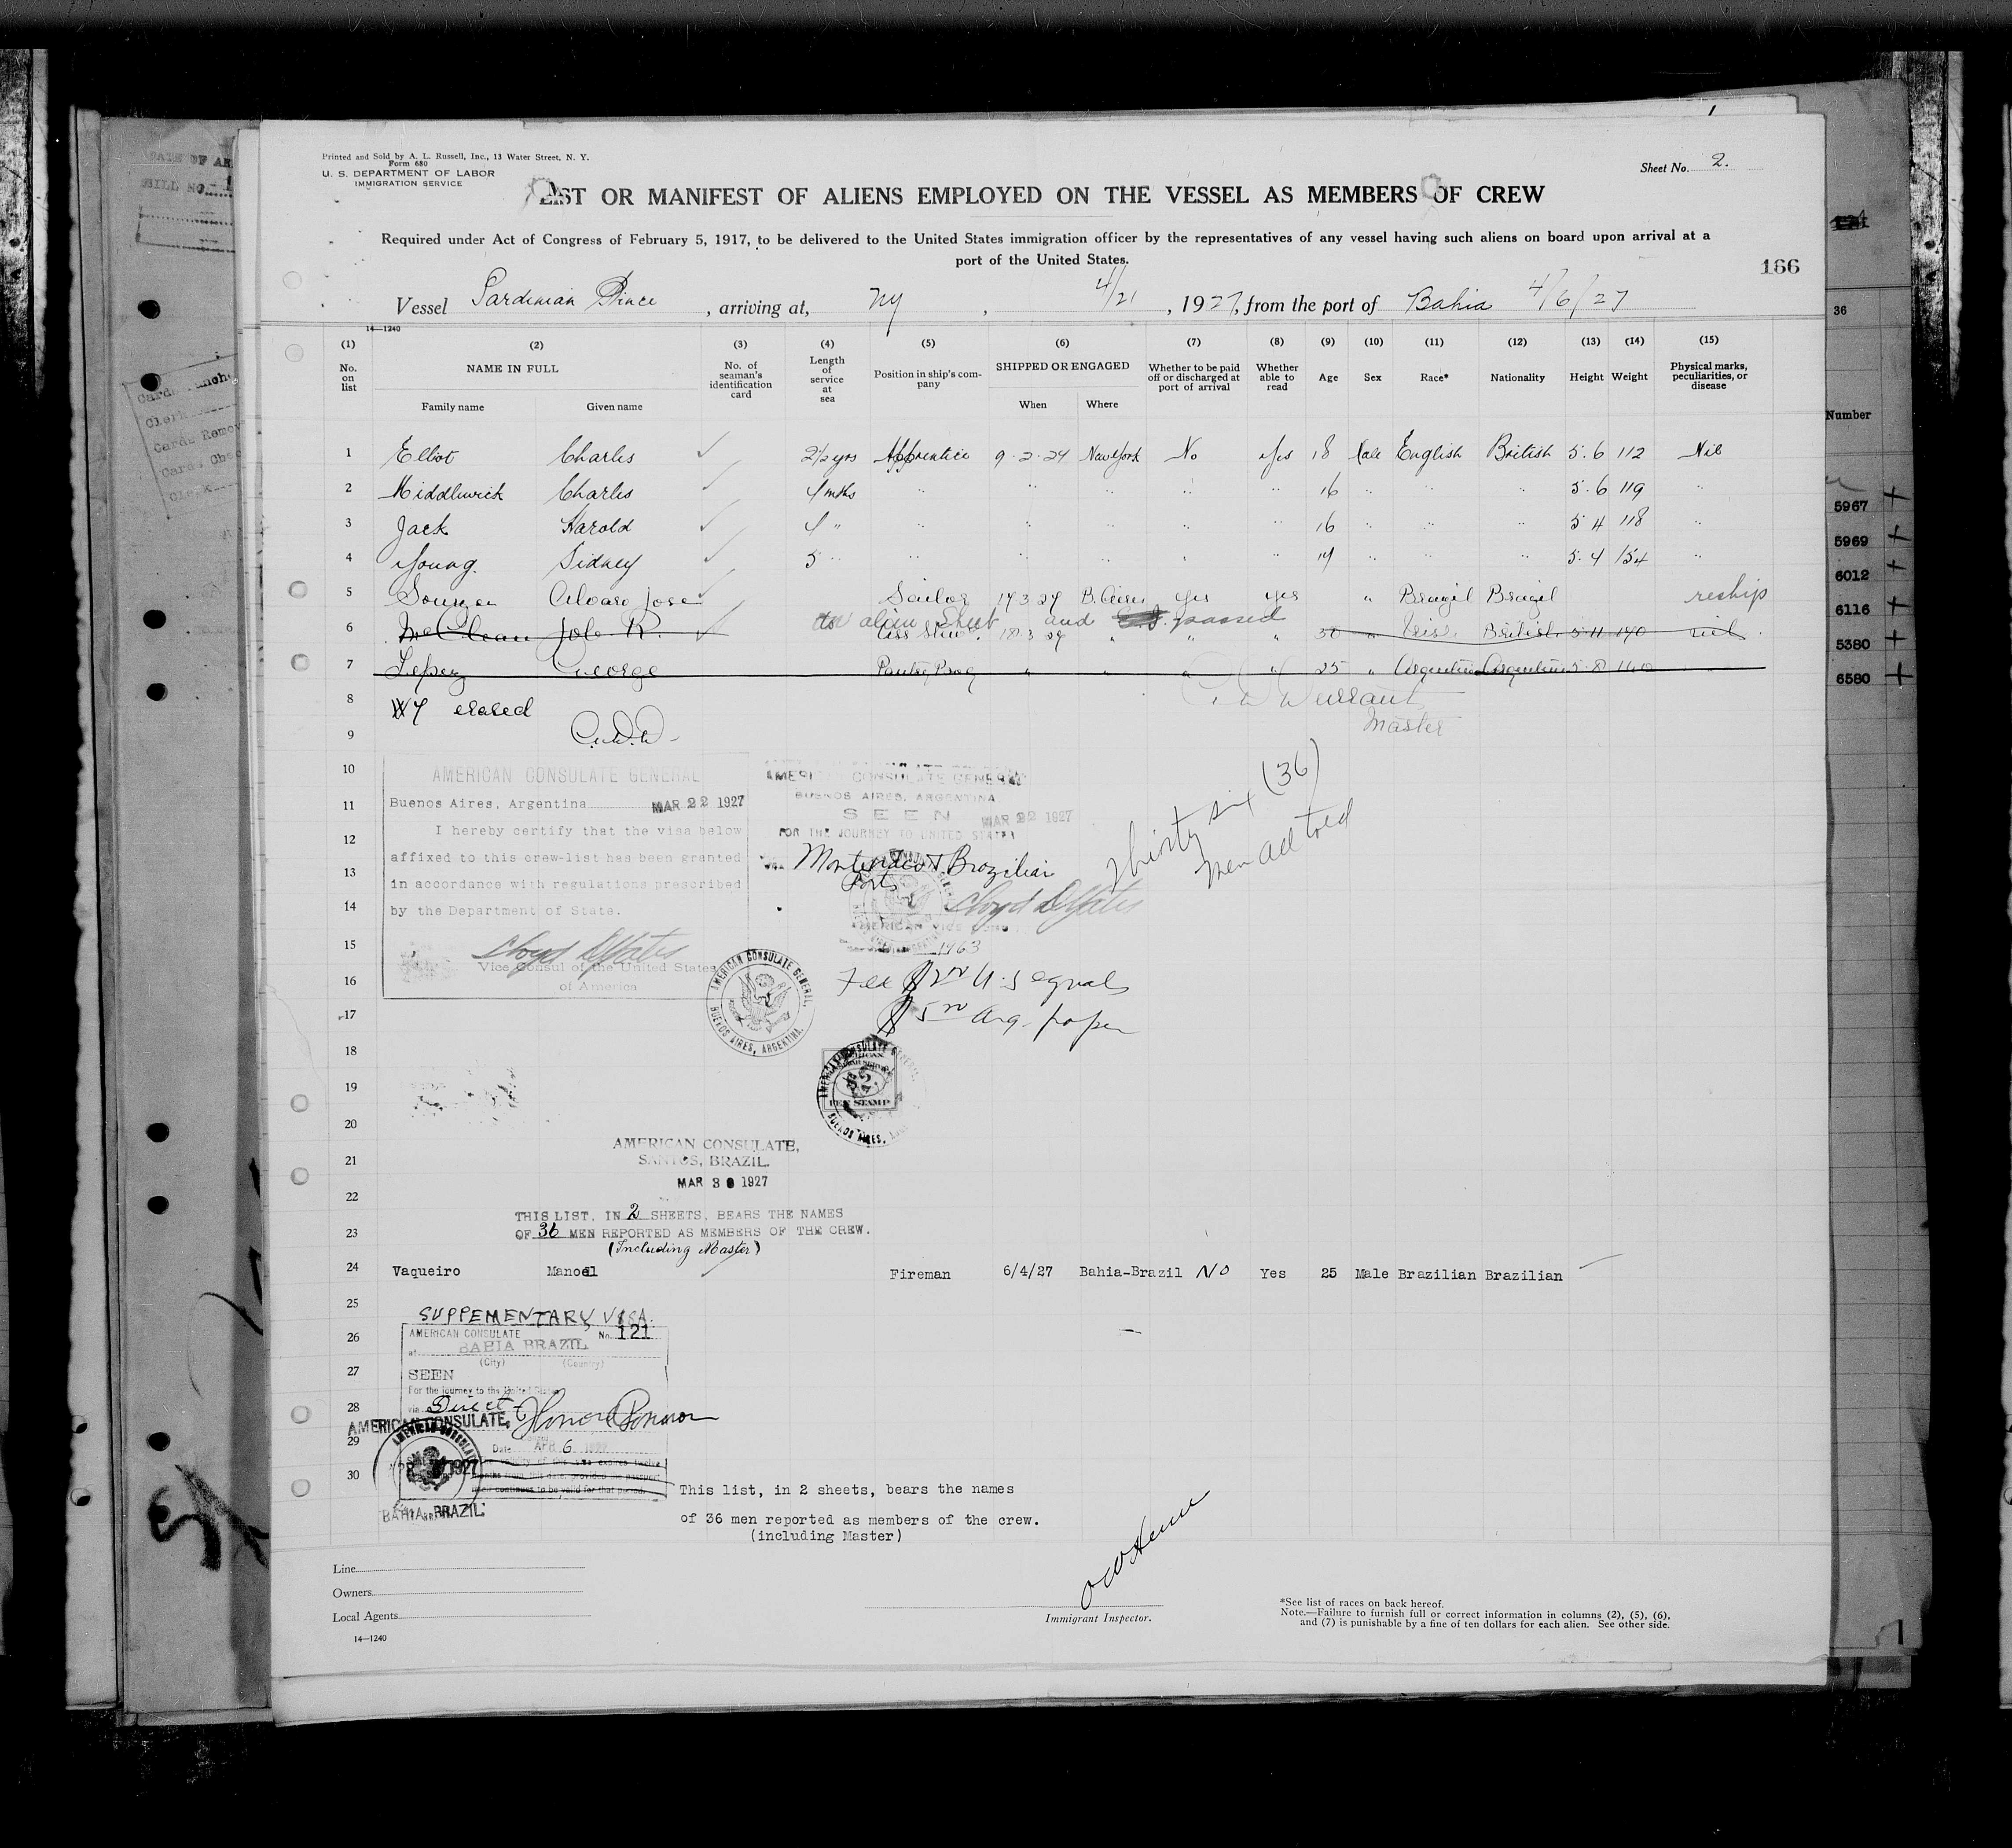 Printed and Sold by A. L. Russell, Inc., 13 Water Street, N. Y.
Form 680
U. S. DEPARTMENT OF LABOR
IMMIGRATION SERVICE
Sheet No. 2.
LIST OR MANIFEST OF ALIENS EMPLOYED ON THE VESSEL AS MEMBERS OF CREW
Required under Act of Congress of February 5, 1917, to be delivered to the United States immigration officer by the representatives of any vessel having such aliens on board upon arrival at a
port of the United States.
166
Vessel Sardinian Prince, arriving at, NY, 4/21, 1927, from the port of Bahia 4/6/27
14—1240
(1) (2) (3) (4) (5) (6) (7) (8) (9) (10) (11) (12) (13) (14) (15)
No. on list NAME IN FULL No. of seaman's identification card Length of service at sea Position in ship's company SHIPPED OR ENGAGED Whether to be paid off or discharged at port of arrival Whether able to read Age Sex Race* Nationality Height Weight Physical marks, peculiarities, or disease
Family name Given name When Where
1 Elliot Charles 2½ yrs Apprentice 9-2-27 New York No Yes 18 Male English British 5.6 112 Nil
2 Middlewick Charles 4 mths " " " " " 16 " " " 5.6 119 "
3 Jack Harold 4 " " " " " " 16 " " " 5 4 118 "
4 Young Sidney 5 " " " " " " 19 " " " 5.4 154 "
5 Souza Alvaro Jose Sailor 17 3 27 B. Aires Yes yes " Brazil Brazil reship
to alien Sheet and passed
6 McClean Job R. Ass Stew. 18 3 27 " " " 30 " Irish British 5 11 140 nil
7 Lepez George Pantry Boy " " " " 25 " Argentine Argentine 5 8 140
8 #7 erased
C.W.D.
C W Durrant
Master
9
10
11
12
13
14
15
16
17
18
19
20
21
22
23
AMERICAN CONSULATE GENERAL
Buenos Aires, Argentina MAR 22 1927
I hereby certify that the visa below
affixed to this crew-list has been granted
in accordance with regulations prescribed
by the Department of State.
Vice Consul of the United States
of America
AMERICAN CONSULATE GENERAL, BUENOS AIRES, ARGENTINA.
AMERICAN CONSULATE GENERAL
BUENOS AIRES, ARGENTINA
SEEN MAR 22 1927
FOR THE JOURNEY TO UNITED STATES
Montevideo & Brazilian
Ports
AMERICAN VICE CONSUL
1963
Thirty six (36)
men all told
Fee $2.00 U.S equals
$5.00 Arg. paper
FEE STAMP
AMERICAN CONSULATE,
SANTOS, BRAZIL.
MAR 30 1927
THIS LIST, IN 2 SHEETS, BEARS THE NAMES
OF 36 MEN REPORTED AS MEMBERS OF THE CREW.
(Including Master)
24 Vaqueiro Manoel Fireman 6/4/27 Bahia-Brazil NO Yes 25 Male Brazilian Brazilian
25
26
27
28
29
30
SUPPEMENTARY VISA.
AMERICAN CONSULATE No. 121
at BAHIA BRAZIL
(City) (Country)
SEEN
For the journey to the United States
via Direct
AMERICAN CONSULATE,
Date APR 6 1927
BAHIA, BRAZIL.
This list, in 2 sheets, bears the names
of 36 men reported as members of the crew.
(including Master)
Line
Owners
Local Agents
14—1240
Immigrant Inspector.
*See list of races on back hereof.
Note.—Failure to furnish full or correct information in columns (2), (5), (6),
and (7) is punishable by a fine of ten dollars for each alien. See other side.
36
Number
5967
5969
6012
6116
5380
6580